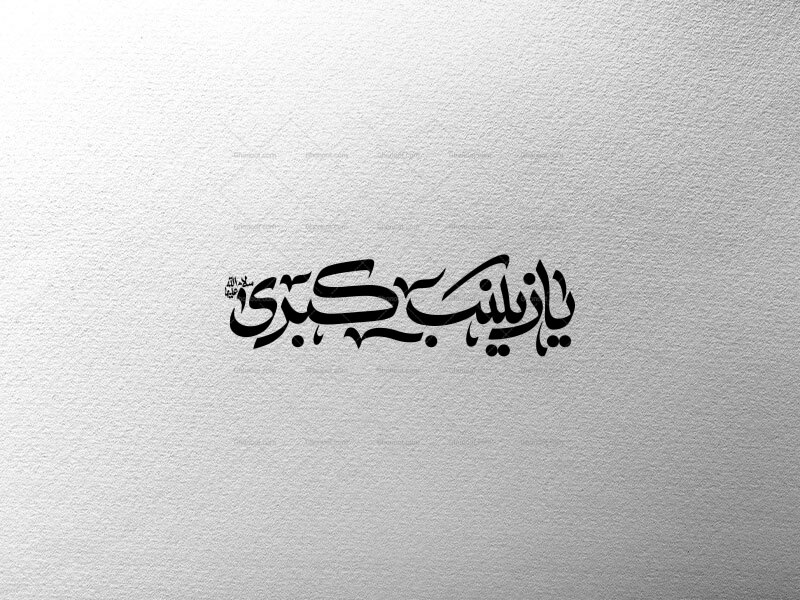 یا زینب کبری سلام الله علیها